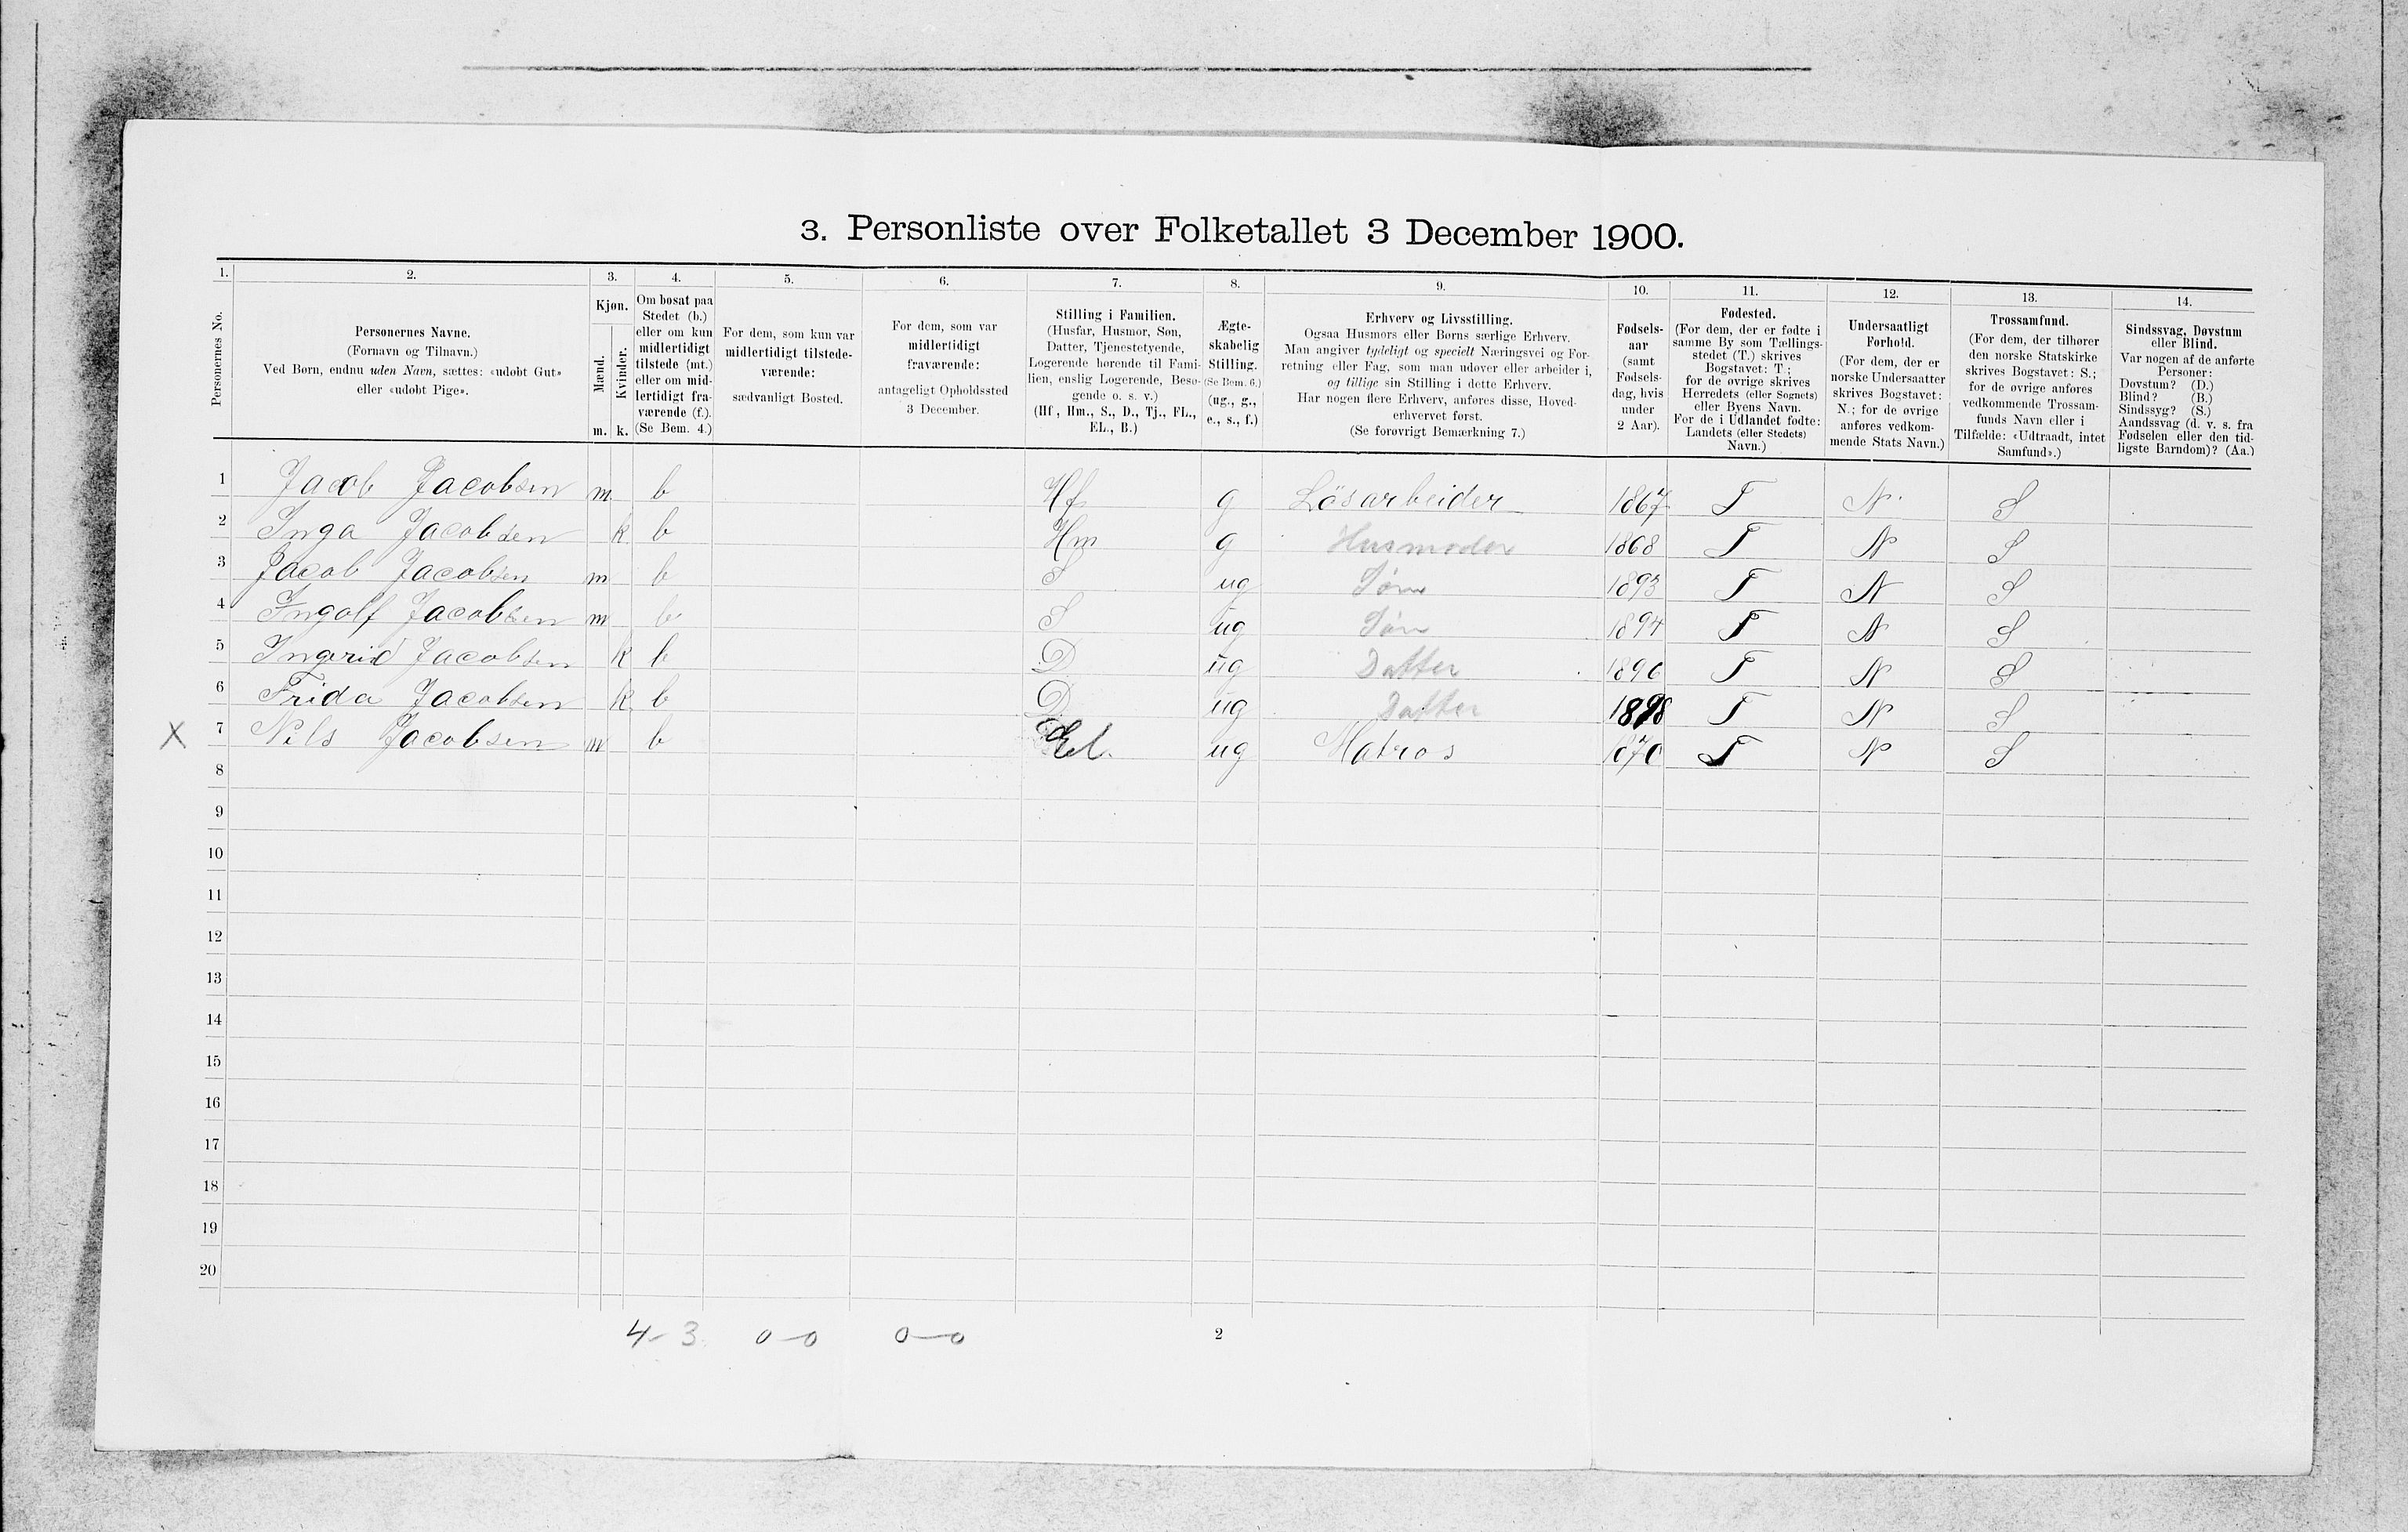 3. Personliste over Folketallet 3 December 1900.
1. 2. 3. 4. 5. 6. 7. 8. 9. 10. 11. 12. 13. 14.
Personernes No.
Personernes Navne.
(Fornavn og Tilnavn.)
Ved Børn, endnu uden Navn, sættes: «udøbt Gut»
eller «udøbt Pige».
Kjøn.
Mænd.
Kvinder.
m. k.
Om bosat paa
Stedet (b.)
eller om kun
midlertidigt
tilstede (mt.)
eller om mid-
lertidigt fra-
værende (f.).
(Se Bem. 4.)
For dem, som kun var
midlertidigt tilstede-
værende:
sædvanligt Bosted.
For dem, som var
midlertidigt
fraværende:
antageligt Opholdssted
3 December.
Stilling i Familien.
(Husfar, Husmor, Søn,
Datter, Tjenestetyende,
Logerende hørende til Fami-
lien, enslig Logerende, Besø-
gende o. s. v.)
(Hf, Hm., S., D., Tj., FL.,
EL., B.)
Ægte-
skabelig
Stilling.
(Se Bem. 6.)
(ug., g.,
e., s., f.)
Erhverv og Livsstilling.
Ogsaa Husmors eller Børns særlige Erhverv.
Man angiver tydeligt og specielt Næringsvei og For-
retning eller Fag, som man udøver eller arbeider i,
og tillige sin Stilling i dette Erhverv.
Har nogen flere Erhverv, anføres disse, Hoved-
erhvervet først.
(Se forøvrigt Bemærkning 7.)
Fødsels-
aar
(samt
Fødsels-
dag, hvis
under
2 Aar).
Fødested.
(For dem, der er fødte i
samme By som Tællings-
stedet (T.) skrives
Bogstavet: T;
for de øvrige skrives
Herredets (eller Sognets)
eller Byens Navn.
For de i Udlandet fødte:
Landets (eller Stedets)
Navn.)
Undersaatligt
Forhold.
(For dem, der er
norske Undersaatter
skrives Bogstavet:
N.; for de øvrige
anføres vedkom-
mende Stats Navn.)
Trossamfund.
(For dem, der tilhører
den norske Statskirke
skrives Bogstavet: S.;
for de øvrige anføres
vedkommende Trossam-
funds Navn eller i
Tilfælde: «Udtraadt, intet
Samfund».)
Sindssvag, Døvstum
eller Blind.
Var nogen af de anførte
Personer:
Døvstum? (D.)
Blind? (B.)
Sindssyg? (S.)
Aandssvag (d. v. s. fra
Fødselen eller den tid-
ligste Barndom)? (Aa.)
1 Jacob Jacobsen m b Hf g Lösarbeider 1867 T N. S
2 Inga Jacobsen k b Hm g Husmoder 1868 T N S
3 Jacob Jacobsen m b S ug Søn 1893 T N S
4 Ingolf Jacobsen m b S ug Søn 1894 T N S
5 Ingrid Jacobsen k b D ug Datter 1896 T N S
6 Frida Jacobsen k b D ug Datter 1898 T N S
X 7 Nils Jacobsen m b El. ug Matros 1870 T N S
8
9
10
11
12
13
14
15
16
17
18
19
20
4-3 0-0 0-0 2